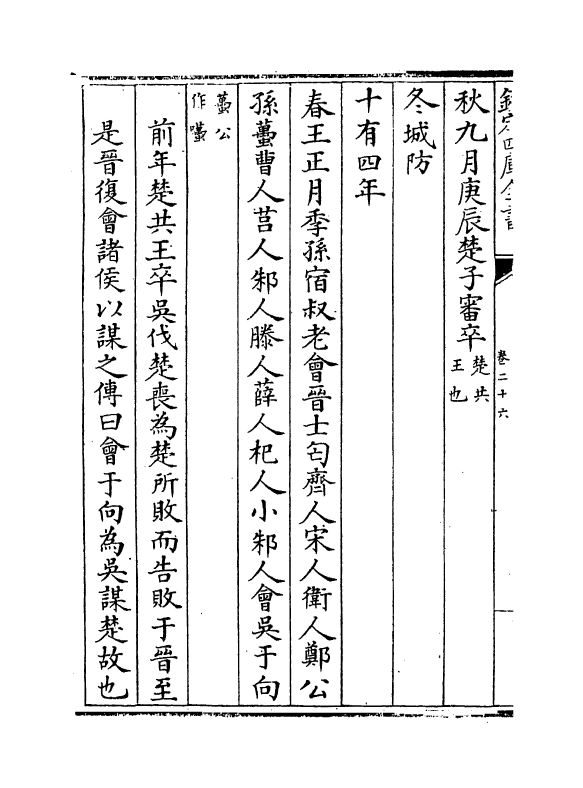 欽定四庫全書
卷二十六
秋九月庚辰楚子審卒楚共王也
冬城防
十有四年
春王正月季孫宿叔老會晉士匄齊人宋人衛人鄭公
孫蠆曹人莒人邾人滕人薛人杞人小邾人會吳于向
蠆公作囆
前年楚共王卒吳伐楚喪為楚所敗而告敗于晉至
是晉復會諸侯以謀之傳曰會于向為吳謀楚故也